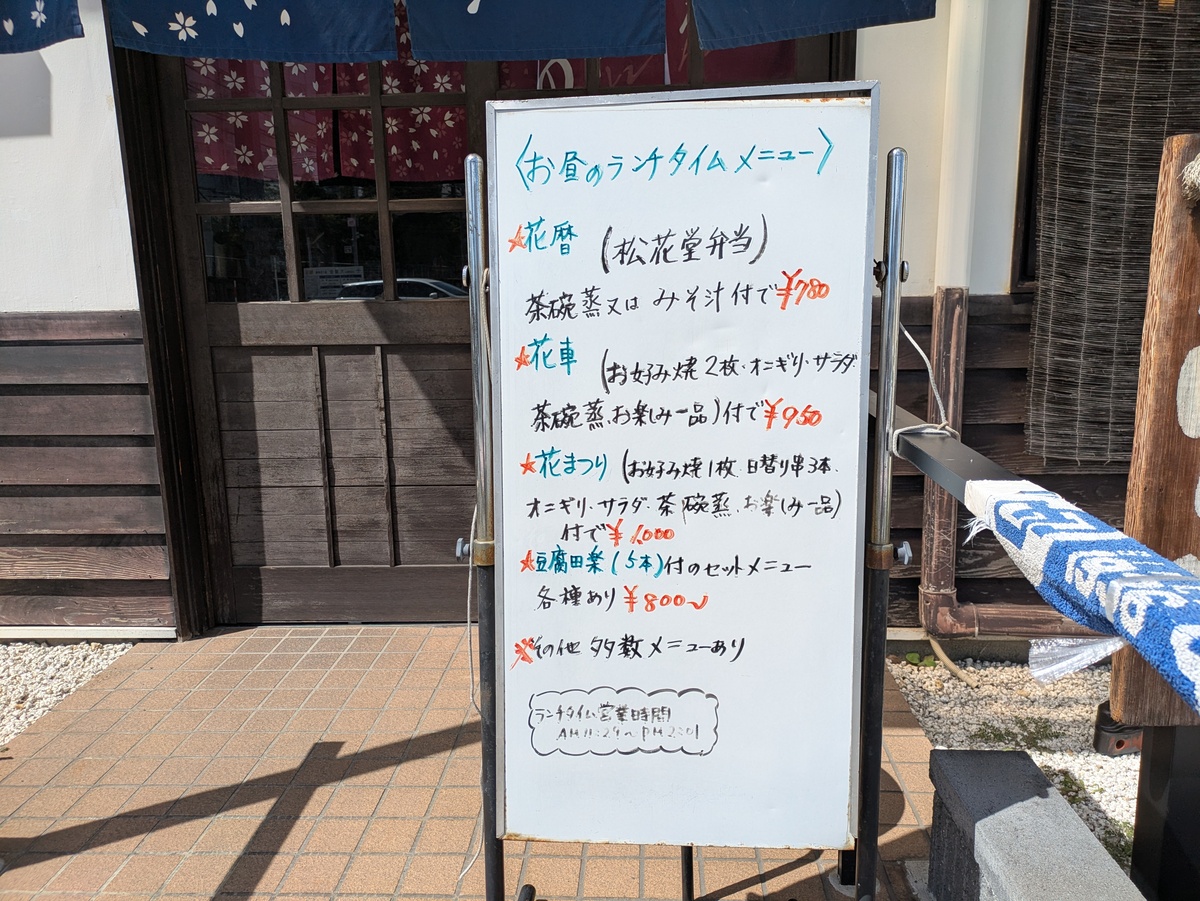 〈お昼のランチタイムメニュー〉
★花暦 (松花堂弁当)
茶碗蒸又はみそ汁付で¥780
★花車 (お好み焼2枚・オニギリ・サラダ
茶碗蒸、お楽しみ一品)付で¥950
★花まつり (お好み焼1枚、日替り串3本、
オニギリ・サラダ・茶碗蒸、お楽しみ一品)
付で¥1,000
★豆腐田楽(5本)付のセットメニュー
各種あり ¥800〜
※その他 多数メニューあり
ランチタイム営業時間
AM11:29〜PM2:01